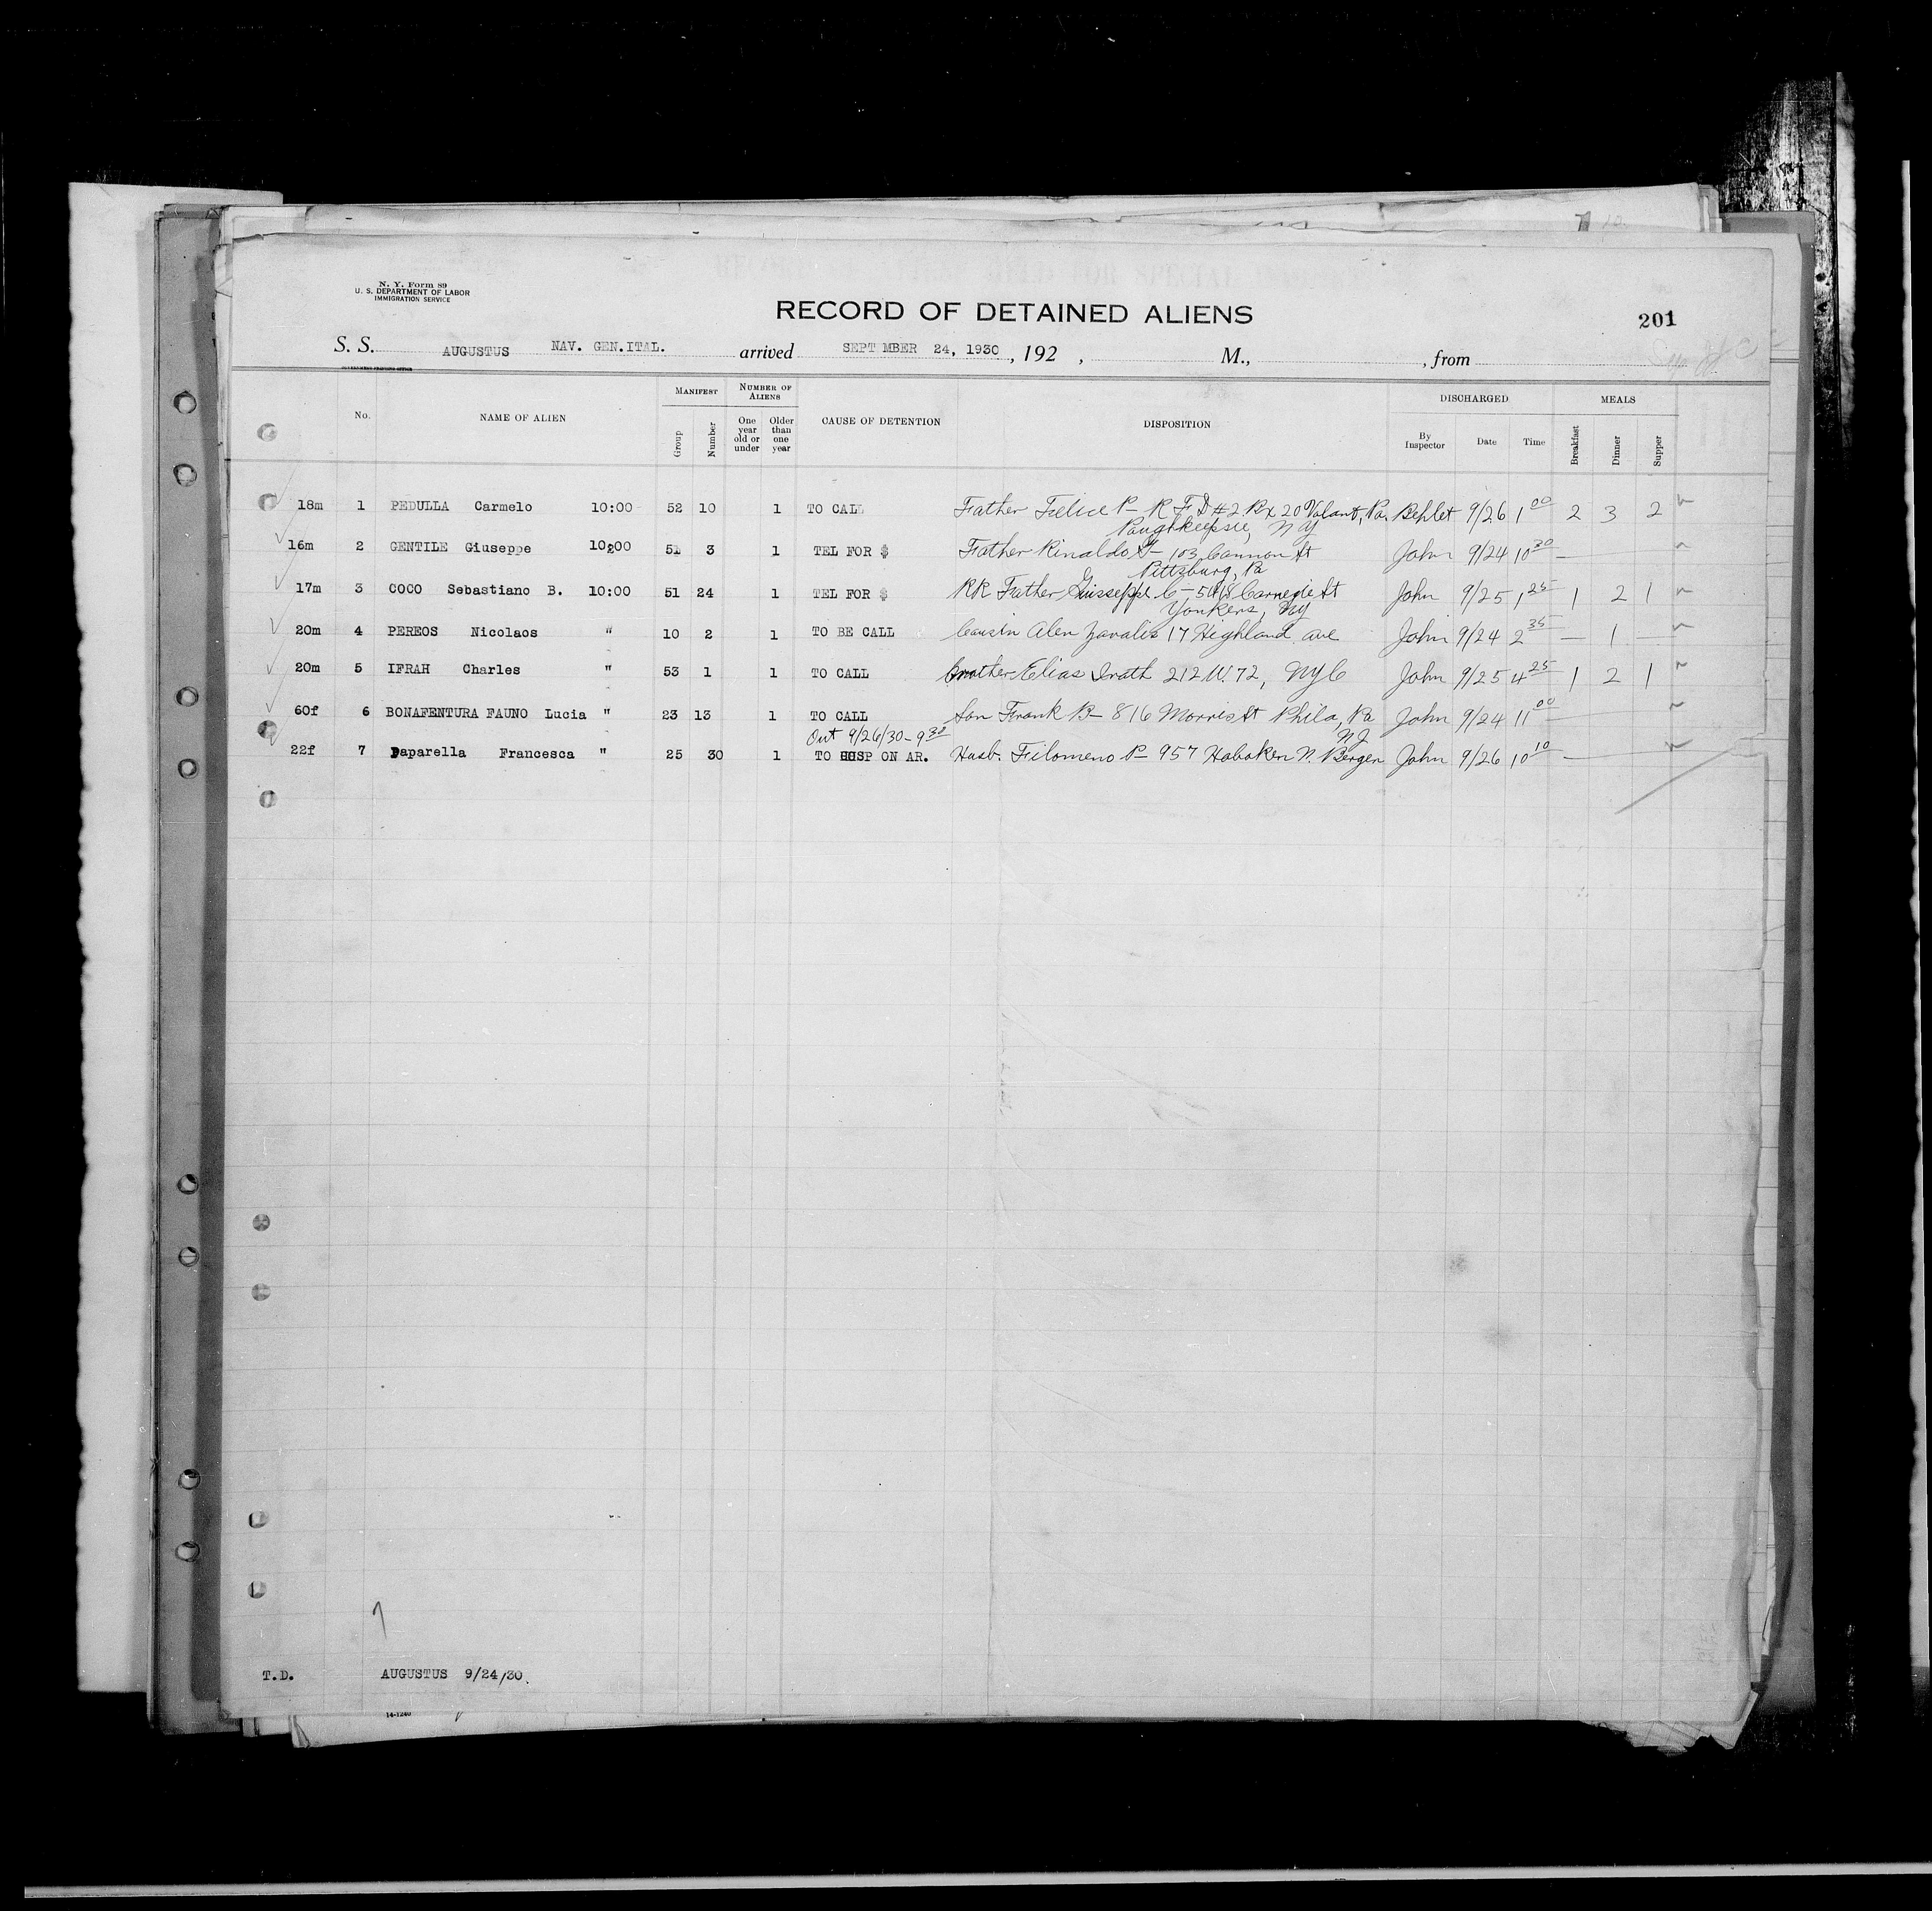 N. Y. Form 89
U. S. DEPARTMENT OF LABOR
IMMIGRATION SERVICE
RECORD OF DETAINED ALIENS
201
S. S. AUGUSTUS NAV. GEN.ITAL. arrived SEPT MBER 24, 1930, 192 , M., , from
No. NAME OF ALIEN MANIFEST Group Number NUMBER OF ALIENS One year old or under Older than one year CAUSE OF DETENTION DISPOSITION DISCHARGED By Inspector Date Time MEALS Breakfast Dinner Supper
18m 1 PEDULLA Carmelo 10:00 52 10 1 TO CALL Father Felice P- R F D #2 Bx 20 Volant, Pa. 9/26 1 00 2 3 2
Poughkeepsie, N Y
16m 2 GENTILE Giuseppe 10:00 51 3 1 TEL FOR $ Father Rinaldo G- 103 Cannon St John 9/24 10 30 —
Pittzburg, Pa
17m 3 COCO Sebastiano B. 10:00 51 24 1 TEL FOR $ RR Father Guisseppe C- Carnegie St John 9/25 1 25 1 2 1
Yonkers, NY
20m 4 PEREOS Nicolaos " 10 2 1 TO BE CALL Cousin Alen 17 Highland ave John 9/24 2 35 — 1 —
20m 5 IFRAH Charles " 53 1 1 TO CALL Brother Elias 212 W. 72, NYC John 9/25 4 25 1 2 1
60f 6 BONAFENTURA FAUNO Lucia " 23 13 1 TO CALL Son Frank B- 816 Morris St Phila, Pa John 9/24 11 00 —
Out 9/26/30 - 9 30
N J
22f 7 Paparella Francesca " 25 30 1 TO HOSP ON AR. Husb. Filomeno P- 957 Hoboken N. Bergen John 9/26 10 10 —
7
T.D. AUGUSTUS 9/24/30.
14-1240